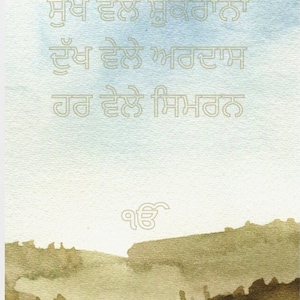 ਸੁਖ ਵੇਲੇ ਸ਼ੁਕਰਾਨਾ
ਦੁੱਖ ਵੇਲੇ ਅਰਦਾਸ
ਹਰ ਵੇਲੇ ਸਿਮਰਨ
ੴ